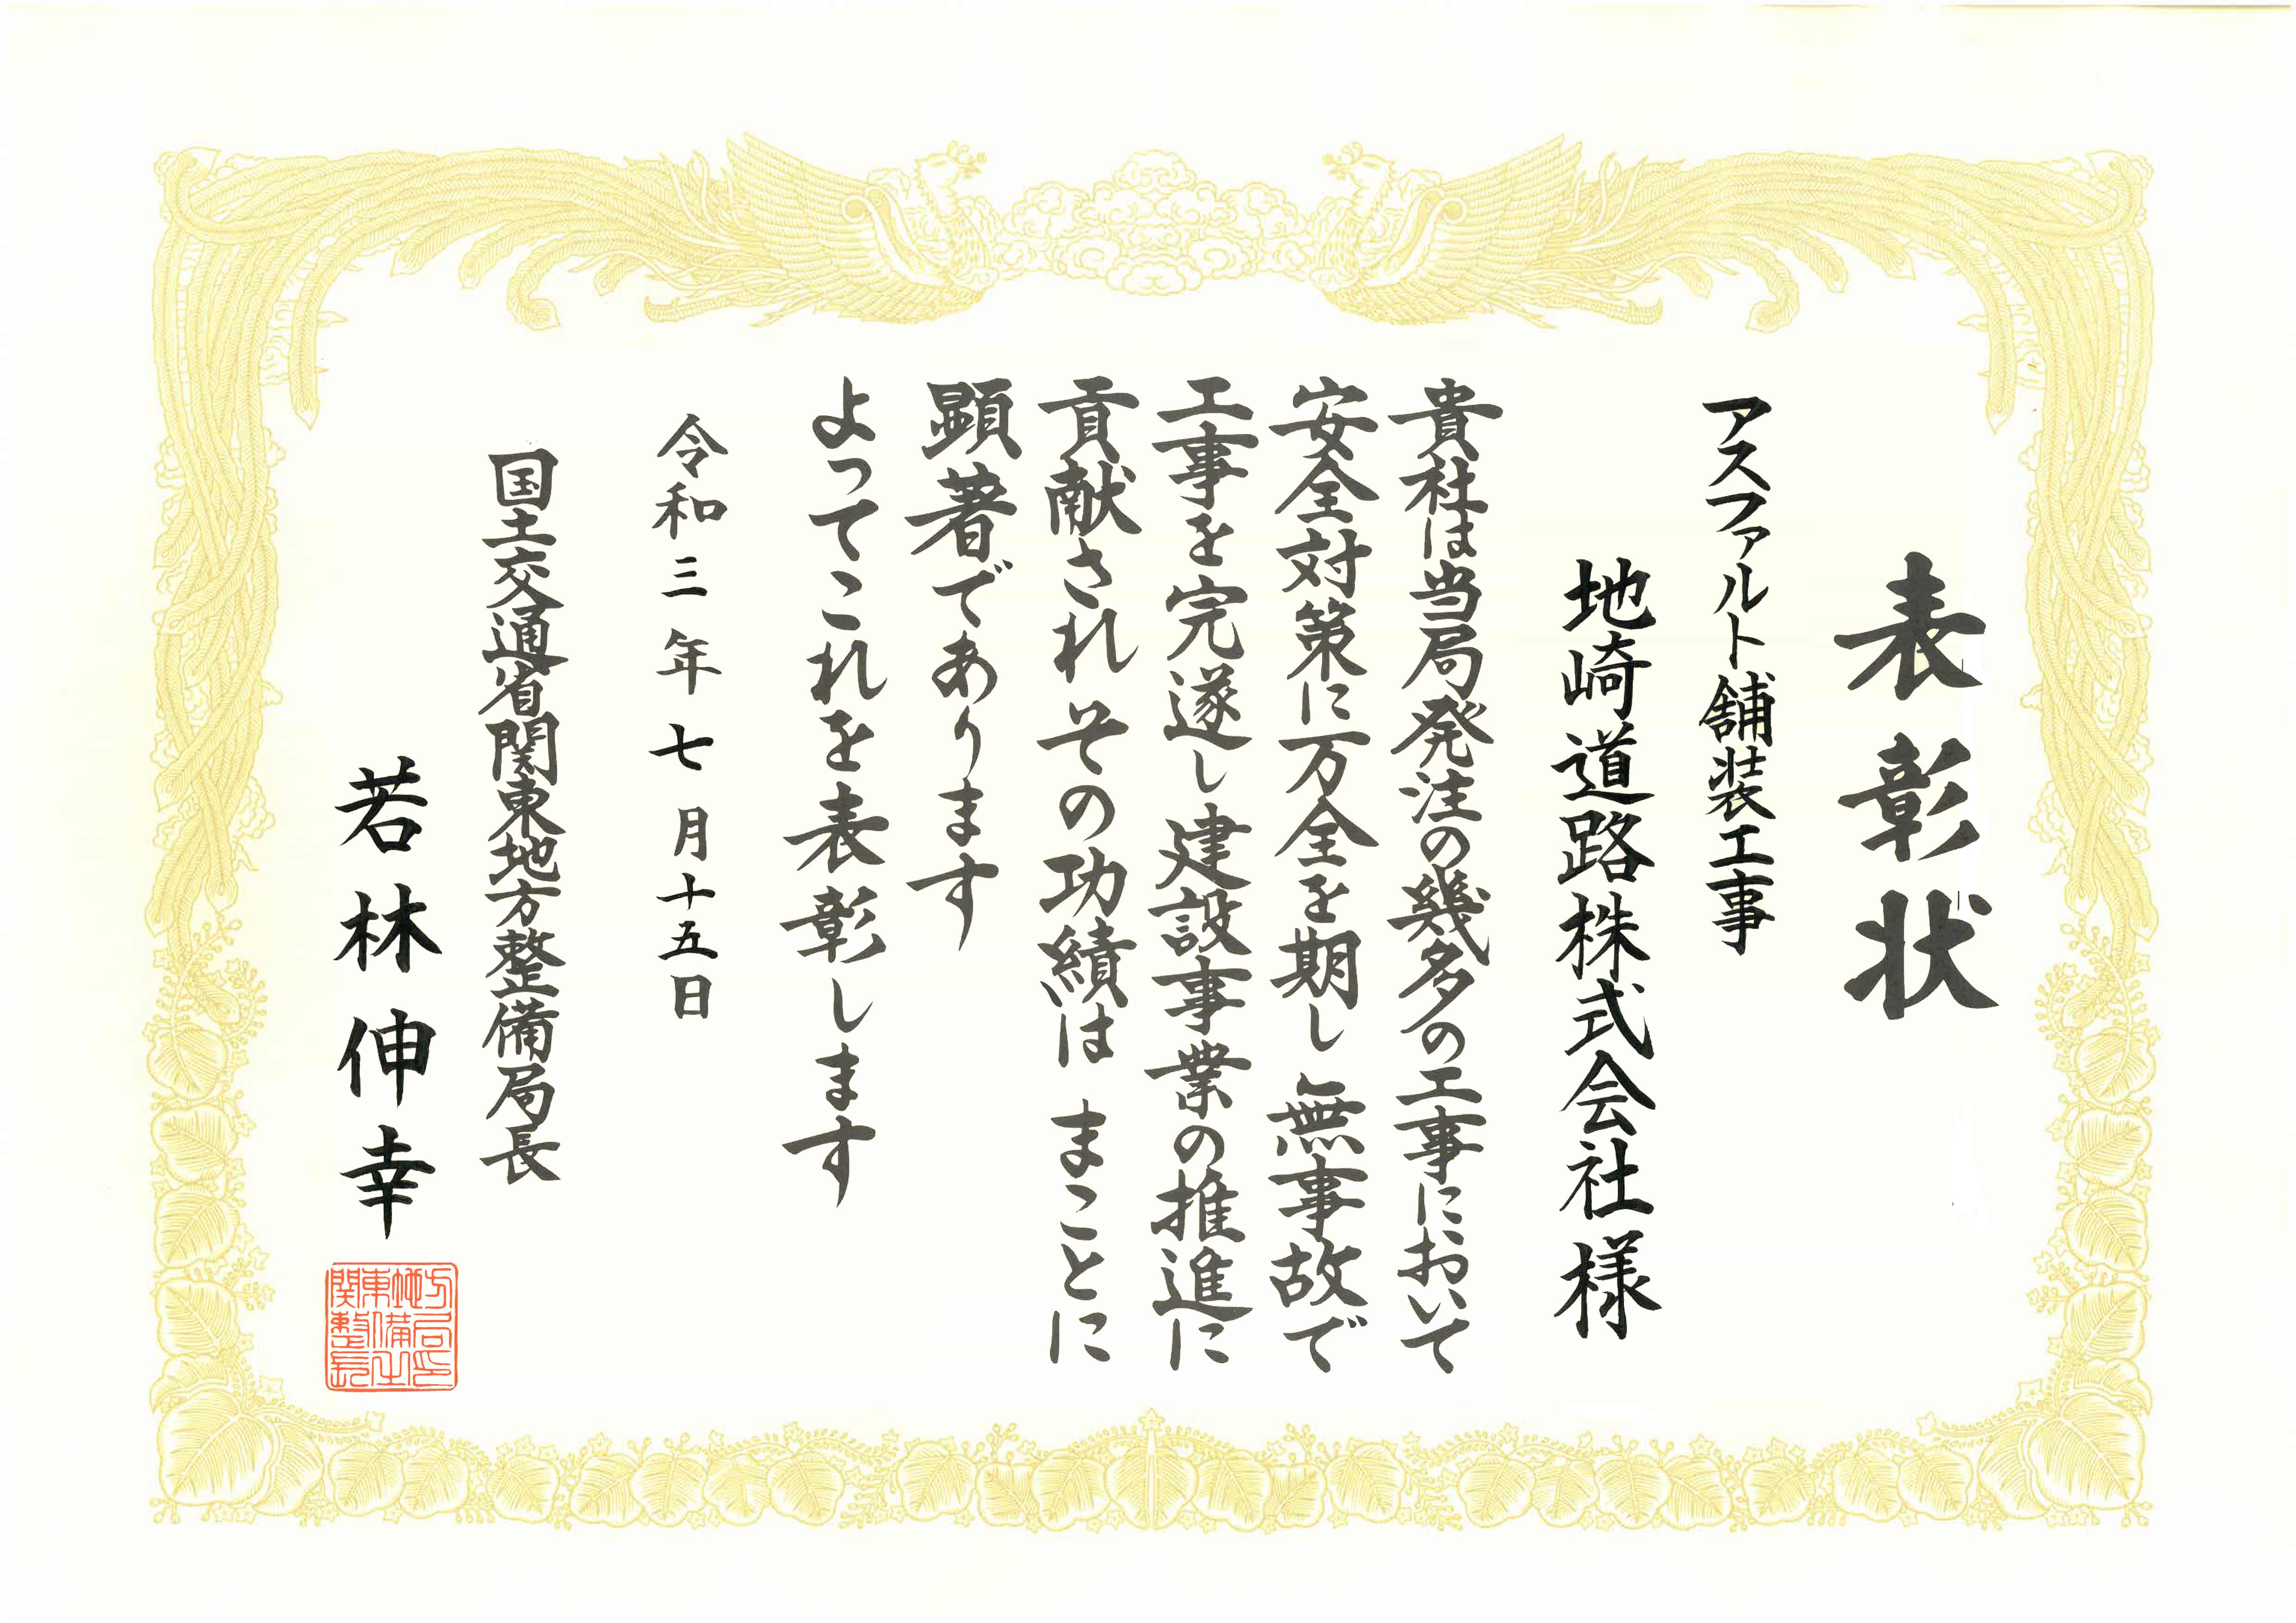 表彰状
アスファルト舗装工事
地崎道路株式会社様
貴社は当局発注の幾多の工事において
安全対策に万全を期し 無事故で
工事を完遂し 建設事業の推進に
貢献され その功績は まことに
顕著であります
よってこれを表彰します
令和三年七月十五日
国土交通省関東地方整備局長
若林伸幸